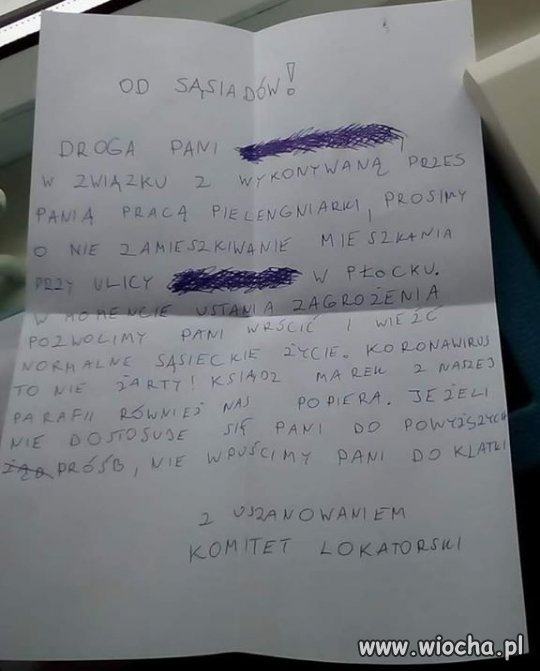 OD SĄSIADÓW!
DROGA PANI
W ZWIĄZKU Z WYKONYWANĄ PRZES
PANIĄ PRACĄ PIELENGNIARKI, PROSIMY
O NIE ZAMIESZKIWANIE MIESZKANIA
PRZY ULICY W PŁOCKU.
W MOMENCIE USTANIA ZAGROŻENIA
POZWOLIMY PANI WRŚCIĆ I WIEŹĆ
NORMALNE SĄSIECKIE ŻYCIE. KORONAWIRUS
TO NIE ŻARTY! KSIĄDZ MAREK Z NASZEJ
PARAFII RÓWNIEŻ NAS POPIERA. JEŻELI
NIE DOSTOSUJE SIĘ PANI DO POWYŻSZYCH
PRÓŚB, NIE WPUŚCIMY PANI DO KLATKI
Z USZANOWANIEM
KOMITET LOKATORSKI
www.wiocha.pl